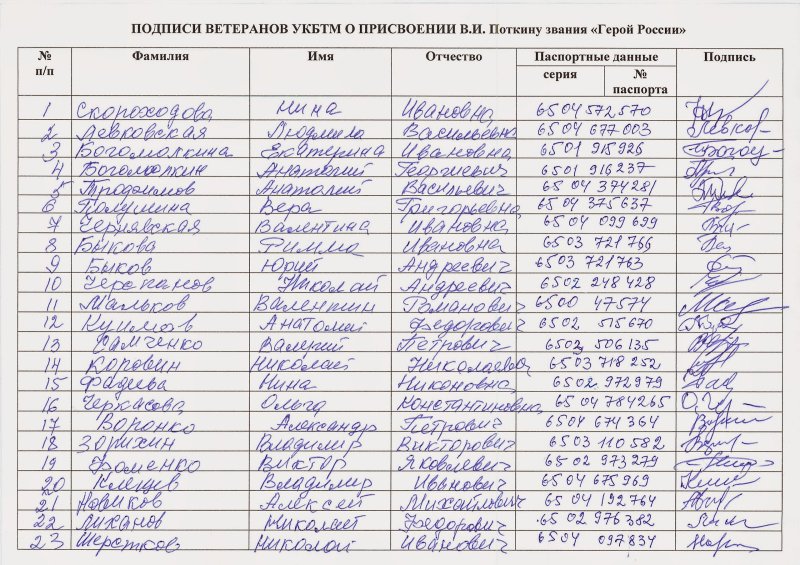 ПОДПИСИ ВЕТЕРАНОВ УКБТМ О ПРИСВОЕНИИ В.И. Поткину звания «Герой России»
№ п/п Фамилия Имя Отчество Паспортные данные Подпись
серия № паспорта
1 Скороходова Нина Ивановна 6504 572570
2 Левковская Людмила Васильевна 6504 677003 Левков-
3 Богомолкина Екатерина Ивановна 6501 918926
4 Богомолкин Анатолий Георгиевич 6501 916237
5 Трофимов Анатолий Васильевич 6504 374281
6 Полушина Вера Григорьевна 6504 375637
7 Чернявская Валентина Ивановна 6504 099699
8 Быкова Римма Ивановна 6503 721766
9 Быков Юрий Андреевич 6503 721763
10 Черепанов Николай Андреевич 6502 248428
11 Мальков Валентин Романович 6500 47574
12 Куимов Анатолий Федорович 6502 515670
13 Самченко Валерий Петрович 6502 506135
14 Коровин Николай Николаевич 6503 718252
15 Фадеева Нина Никоновна 6502 972979
16 Черкасова Ольга Константиновна 6504 784265
17 Воронко Александр Петрович 6504 674364
18 Зорихин Владимир Викторович 6503 110582
19 Фоменко Виктор Яковлевич 6502 973279
20 Клещев Владимир Иванович 6504 675969
21 Новиков Алексей Михайлович 6504 192764
22 Лиханов Николай Федорович 6502 976382
23 Шерстков Николай Иванович 6504 097834